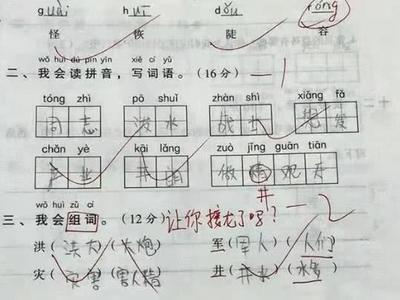 guài huī dǒu róng
怪 恢 陡 容
wǒ huì dú pīn yīn xiě cí yǔ
二、我会读拼音,写词语。(16分) —1
tóng zhì pō shuǐ zhàn shì xiāng fā
同志 泼水 战士 发
chǎn yè kāi lǎng zuò jǐng guān tiān
产业 朗 做 观天
井
wǒ huì zǔ cí
三、我会组词。(12分) 让你接龙了吗? —2
洪(洪大)(大炮) 军(军人)(人们)
灾(灾害)(害人精) 井(井水)(水)